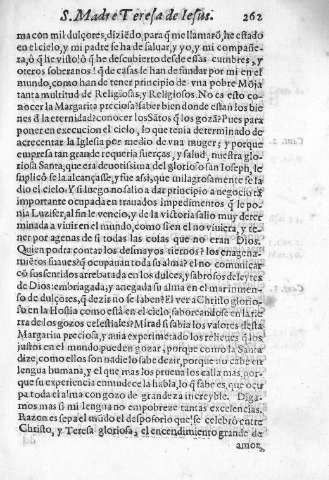 S. Madre Teresa de Iesus. 262
ma con mil dulçores, diziẽdo, para q̃ me llamarõ, he estado
en el cielo, y mi padre se ha de saluar, y yo, y mi compañe-
ra, ò q̃ he visto! ò q̃ he descubierto desde essas cumbres, y
oteros soberanos! q̃ de casas se han de fundar por mi en el
mundo, como han de tener principio de vna pobre Mõja
tanta multitud de Religiosas, y Religiosos. No es esto co-
nocer la Margarita preciosa? saber bien donde estàn los bie
nes d̃ la eternidad? conocer los Sãtos q̃ los gozã? Pues para
poner en execucion el cielo, lo que tenia determinado de
acrecentar la Iglesia por medio de vna muger; y porque
empresa tan grande requeria fuerças, y salud, nuestra glo-
riosa Santa, que era deuotissima del glorioso san Ioseph, le
suplicò se la alcançasse, y fue assi, que milagrosamente se la
dio el cielo. Y si luego no salio a dar principio a negocio tã
importante ocupada en trauados impedimentos q̃ le po-
nia Luzifer, al fin le vencio, y de la vitoria salio muy deter
minada a viuir en el mundo, como si en el no viuiera, y te-
ner por agenas de si todas las cosas que no eran Dios.
Quien podrà contar los desmayos tiernos? los enagena-
miẽtos suaues q̃ ocupauan toda su alma? el no comunicar
cõ sus sentidos arrebatada en los dulces, y sabrosos deleytes
de Dios: embriagada, y anegada su alma en el mar inmen-
so de dulçores, q̃ dezis no se saben? El ver a Christo glorio-
so en la Hostia como està en el cielo, saboreandose en la tie
rra de los gozos celestiales? Mirad si sabia los valores desta
Margarita preciosa, y auia experimentado los relieues q̃ los
justos en el mundo pueden gozar; porque como la Santa
dize, como ellos son nadie lo sabe dezir, porque no cabe en
lengua humana, y el que mas los prueua los calla mas, por-
que su experiencia enmudece la habla, lo q̃ sabe es, que ocu
pa toda el alma con gozo de grandeza increyble. Diga-
mos mas si mi lengua no empobreze tantas excelencias.
Razon es sepa el mũdo el desposorio que se celebrò entre
Christo, y Teresa gloriosa; el encendimiento grande de
amor,